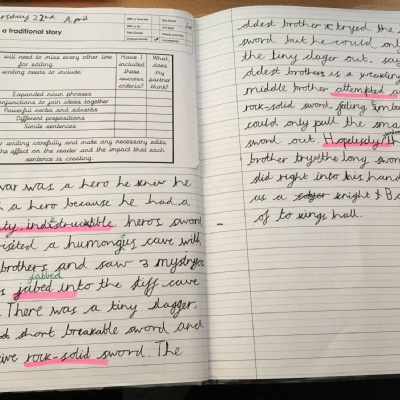 ursday 22nd April
a traditional story
will need to miss every other line
for editing.
writing needs to include:
Have I
included
these
success
criteria?
What
does
my
partner
think?
Expanded noun phrases
conjunctions to join ideas together
Powerful verbs and adverbs
Different prepositions
Simile sentences
writing carefully and make any necessary edits.
the effect on the reader and the impact that each
sentence is creating.
was a hero he knew he
a hero because he had a
heros sword
a humongus cave with
brothers and saw 3
jabbed
jabed into the stiff cave
There was a tiny dagger
short breakable sword and
rock-solid sword. The
oldest brother tryed the
sword but he could only
the tiny dager out, say
oldest brothers is a
middle brother attempted
rock-solid sword, faling
could only pull the
sword out. Hopelesly
brother try the long swor
did right into his han
as a knight & B
of to kings hall.